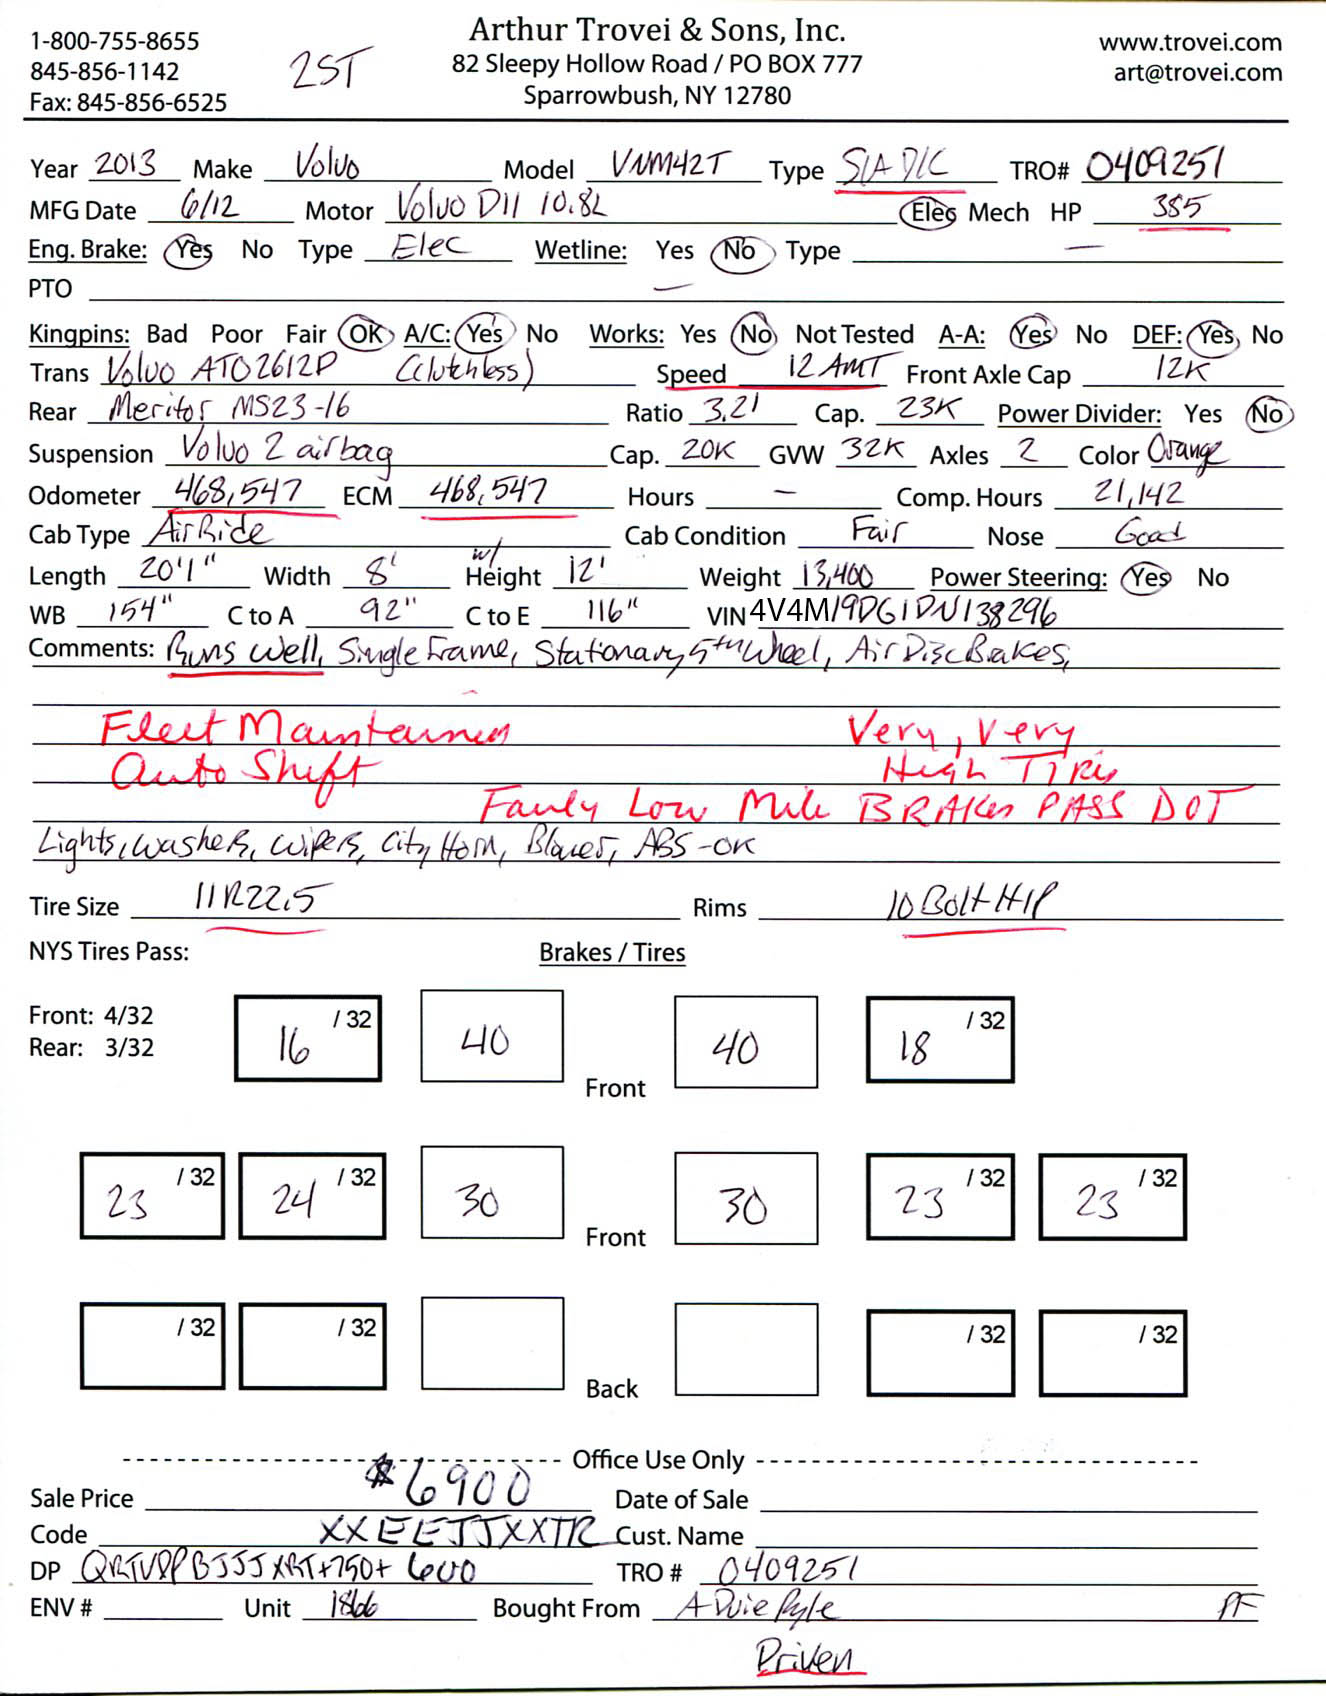 Arthur Trovei & Sons, Inc.
1-800-755-8655 www.trovei.com
845-856-1142 2ST 82 Sleepy Hollow Road / PO BOX 777 art@trovei.com
Fax: 845-856-6525 Sparrowbush, NY 12780
Year 2013 Make Volvo Model VNM42T Type S/A D/C TRO# 0409251
MFG Date 6/12 Motor Volvo D11 10.8L Elec Mech HP 385
Eng. Brake: Yes No Type Elec Wetline: Yes No Type —
PTO —
Kingpins: Bad Poor Fair OK A/C: Yes No Works: Yes No Not Tested A-A: Yes No DEF: Yes No
Trans Volvo ATO2612D (Clutchless) Speed 12 AMT Front Axle Cap 12K
Rear Meritor MS23-16 Ratio 3.21 Cap. 23K Power Divider: Yes No
Suspension Volvo 2 airbag Cap. 20K GVW 32K Axles 2 Color Orange
Odometer 468,547 ECM 468,547 Hours — Comp. Hours 21,142
Cab Type Air Ride Cab Condition Fair Nose Good
Length 20'1" Width 8' w/ Height 12' Weight 13,400 Power Steering: Yes No
WB 154" C to A 92" C to E 116" VIN 4V4M19DG1DN138296
Comments: Runs well, Single Frame, Stationary 5th Wheel, Air Disc Brakes,
Fleet Maintained Very, Very
Auto Shift High Tires
Fairly Low Mile BRAKes PASS DOT
Lights, washers, wipers, City Horn, Blower, ABS -OK
Tire Size 11R22.5 Rims 10 Bolt H/P
NYS Tires Pass: Brakes / Tires
Front: 4/32 16 /32 40 40 18 /32
Rear: 3/32
Front
23 /32 24 /32 30 30 23 /32 23 /32
Front
/32 /32 /32 /32
Back
Office Use Only
Sale Price $6900 Date of Sale
Code XXEEJJXXTR Cust. Name
DP +750+ 600 TRO # 0409251
ENV # Unit 1866 Bought From A Duie Pyle PF
Driven